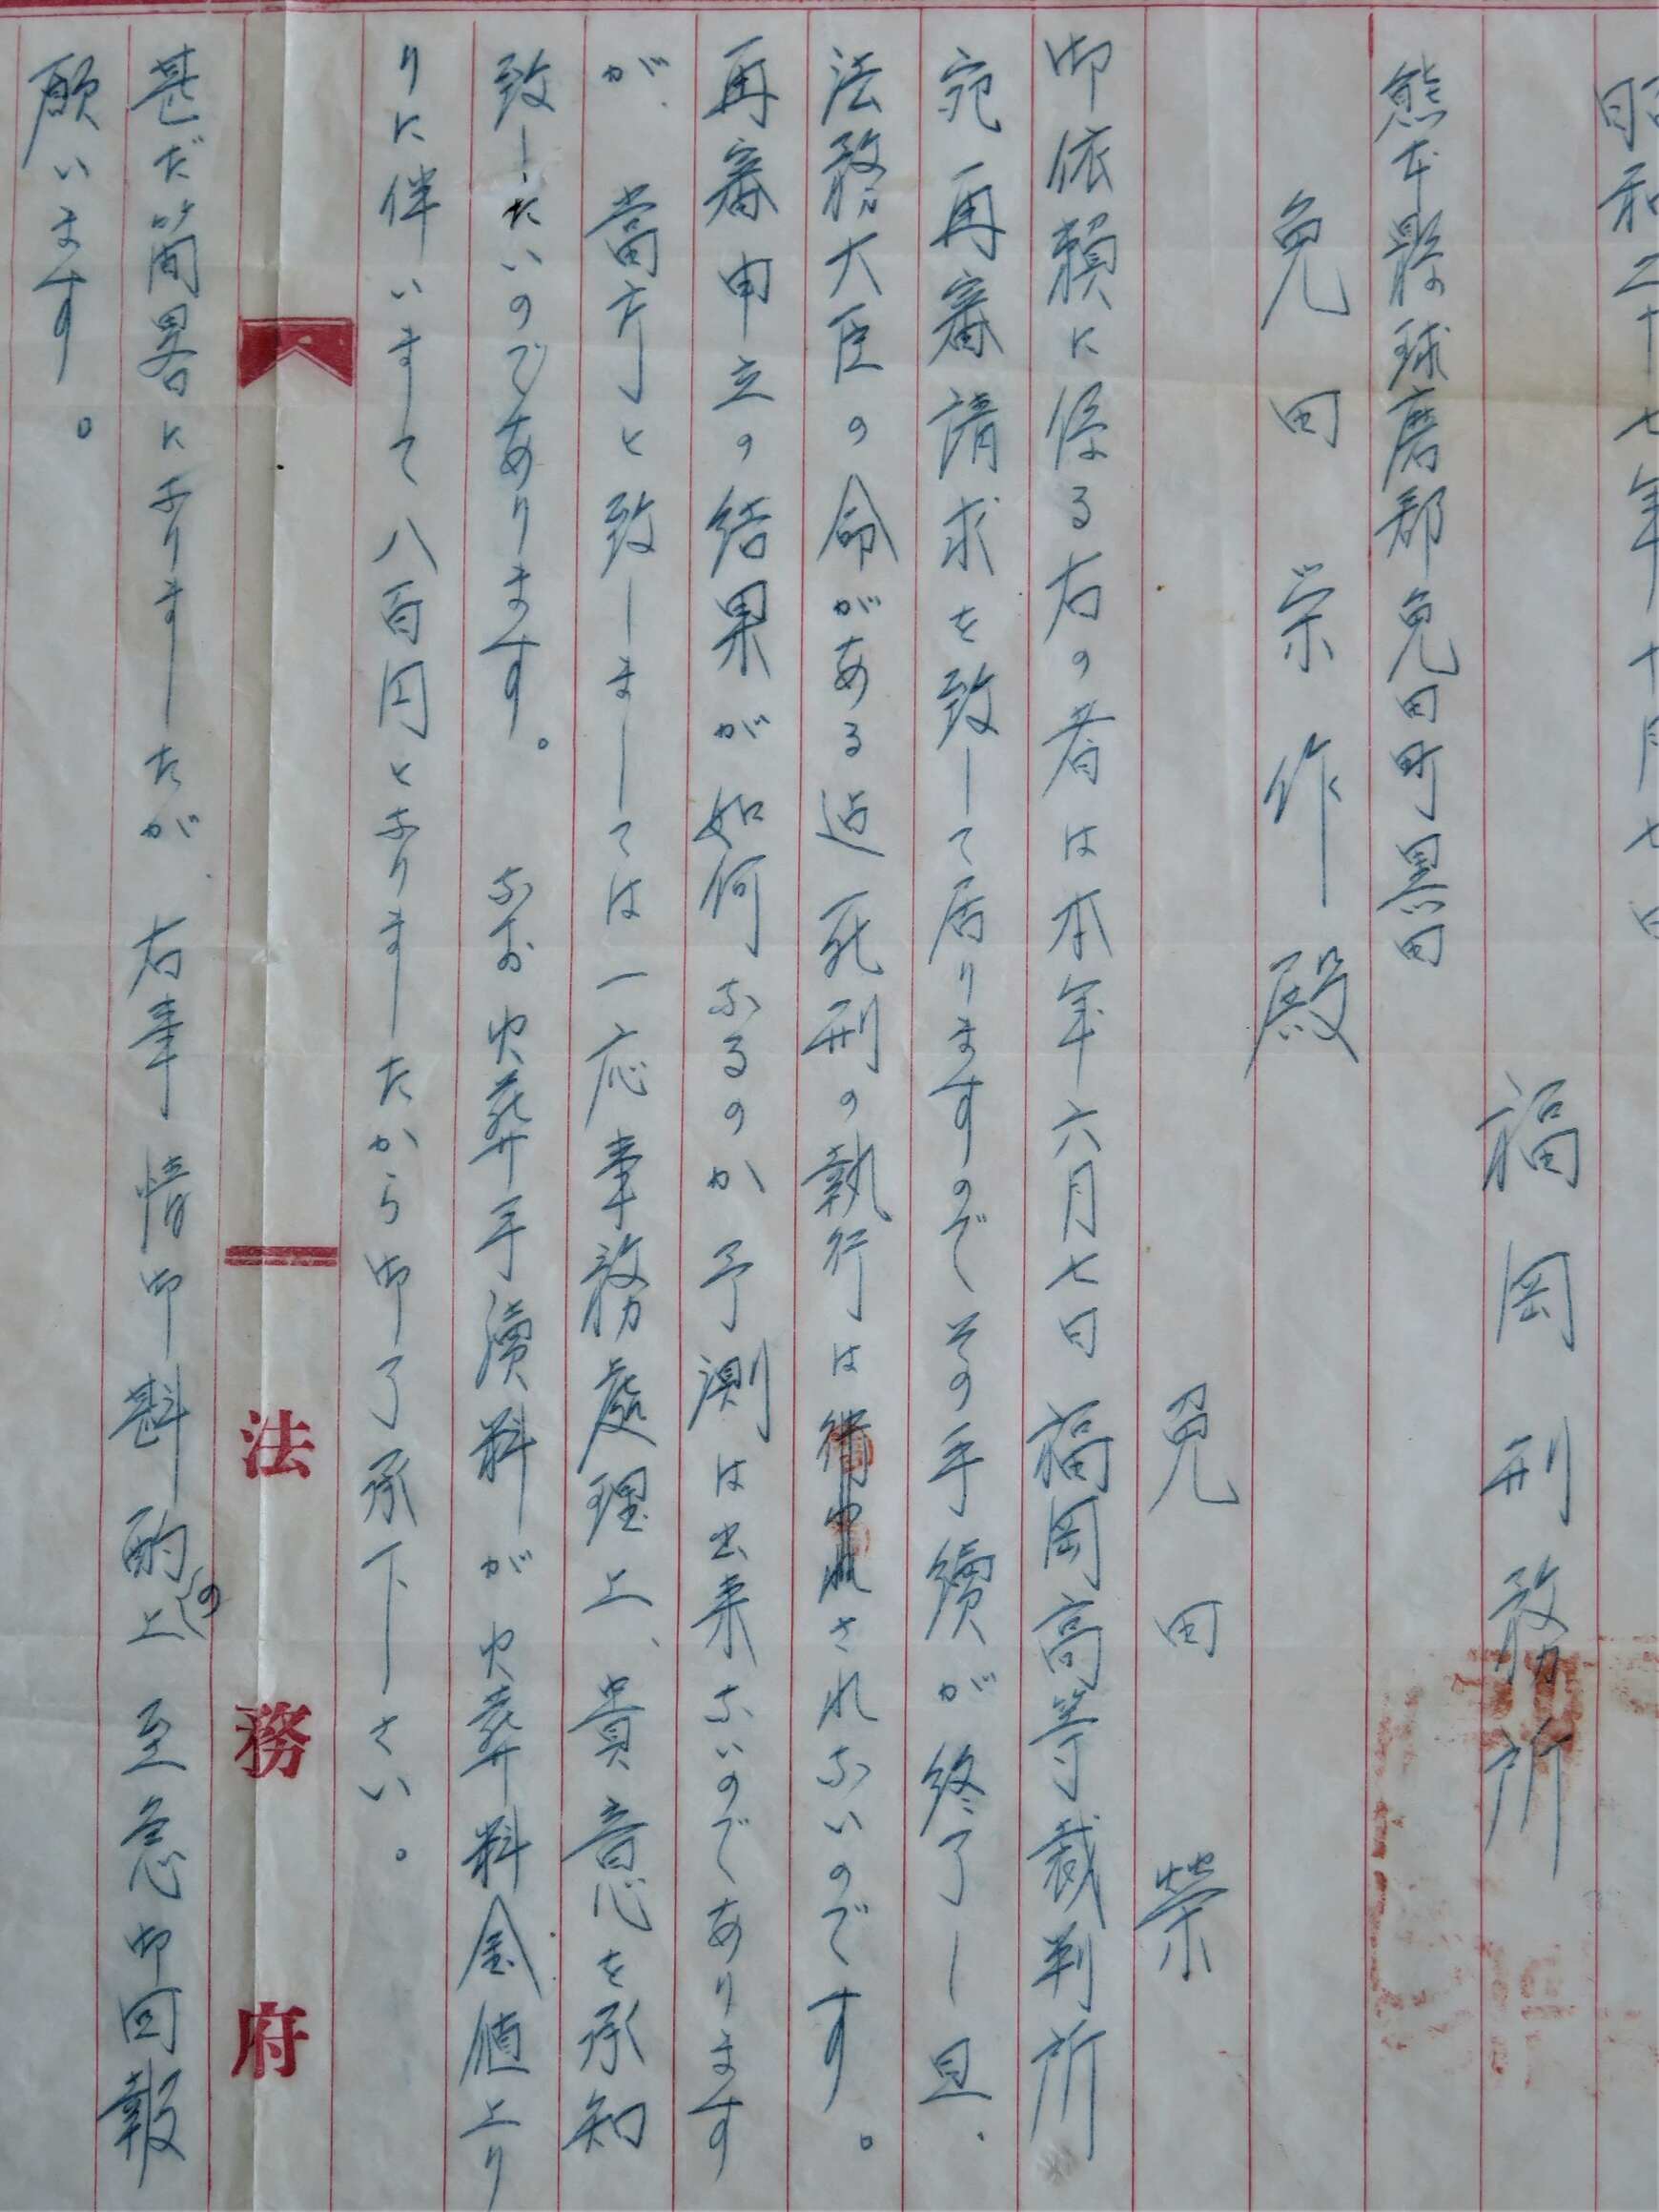 昭和二十七年十月七日
福岡刑務所
熊本縣球磨郡免田町黒田
免田栄作殿
免田榮
御依頼に係る右の者は本年六月七日福岡高等裁判所
宛再審請求を致して居りますのでその手續が終了し且、
法務大臣の命がある迄死刑の執行はされないのです。
再審申立の結果が如何なるのか予測は出来ないのであります
が、當方と致しましては一応事務處理上、貴意を承知
致したいのであります。なお火葬手續料が火葬料金値上り
りに伴いまして八百円となりましたから御了承下さい。
法務府
甚だ簡畧になりましたが、右事情御斟酌の上至急御回報
願います。